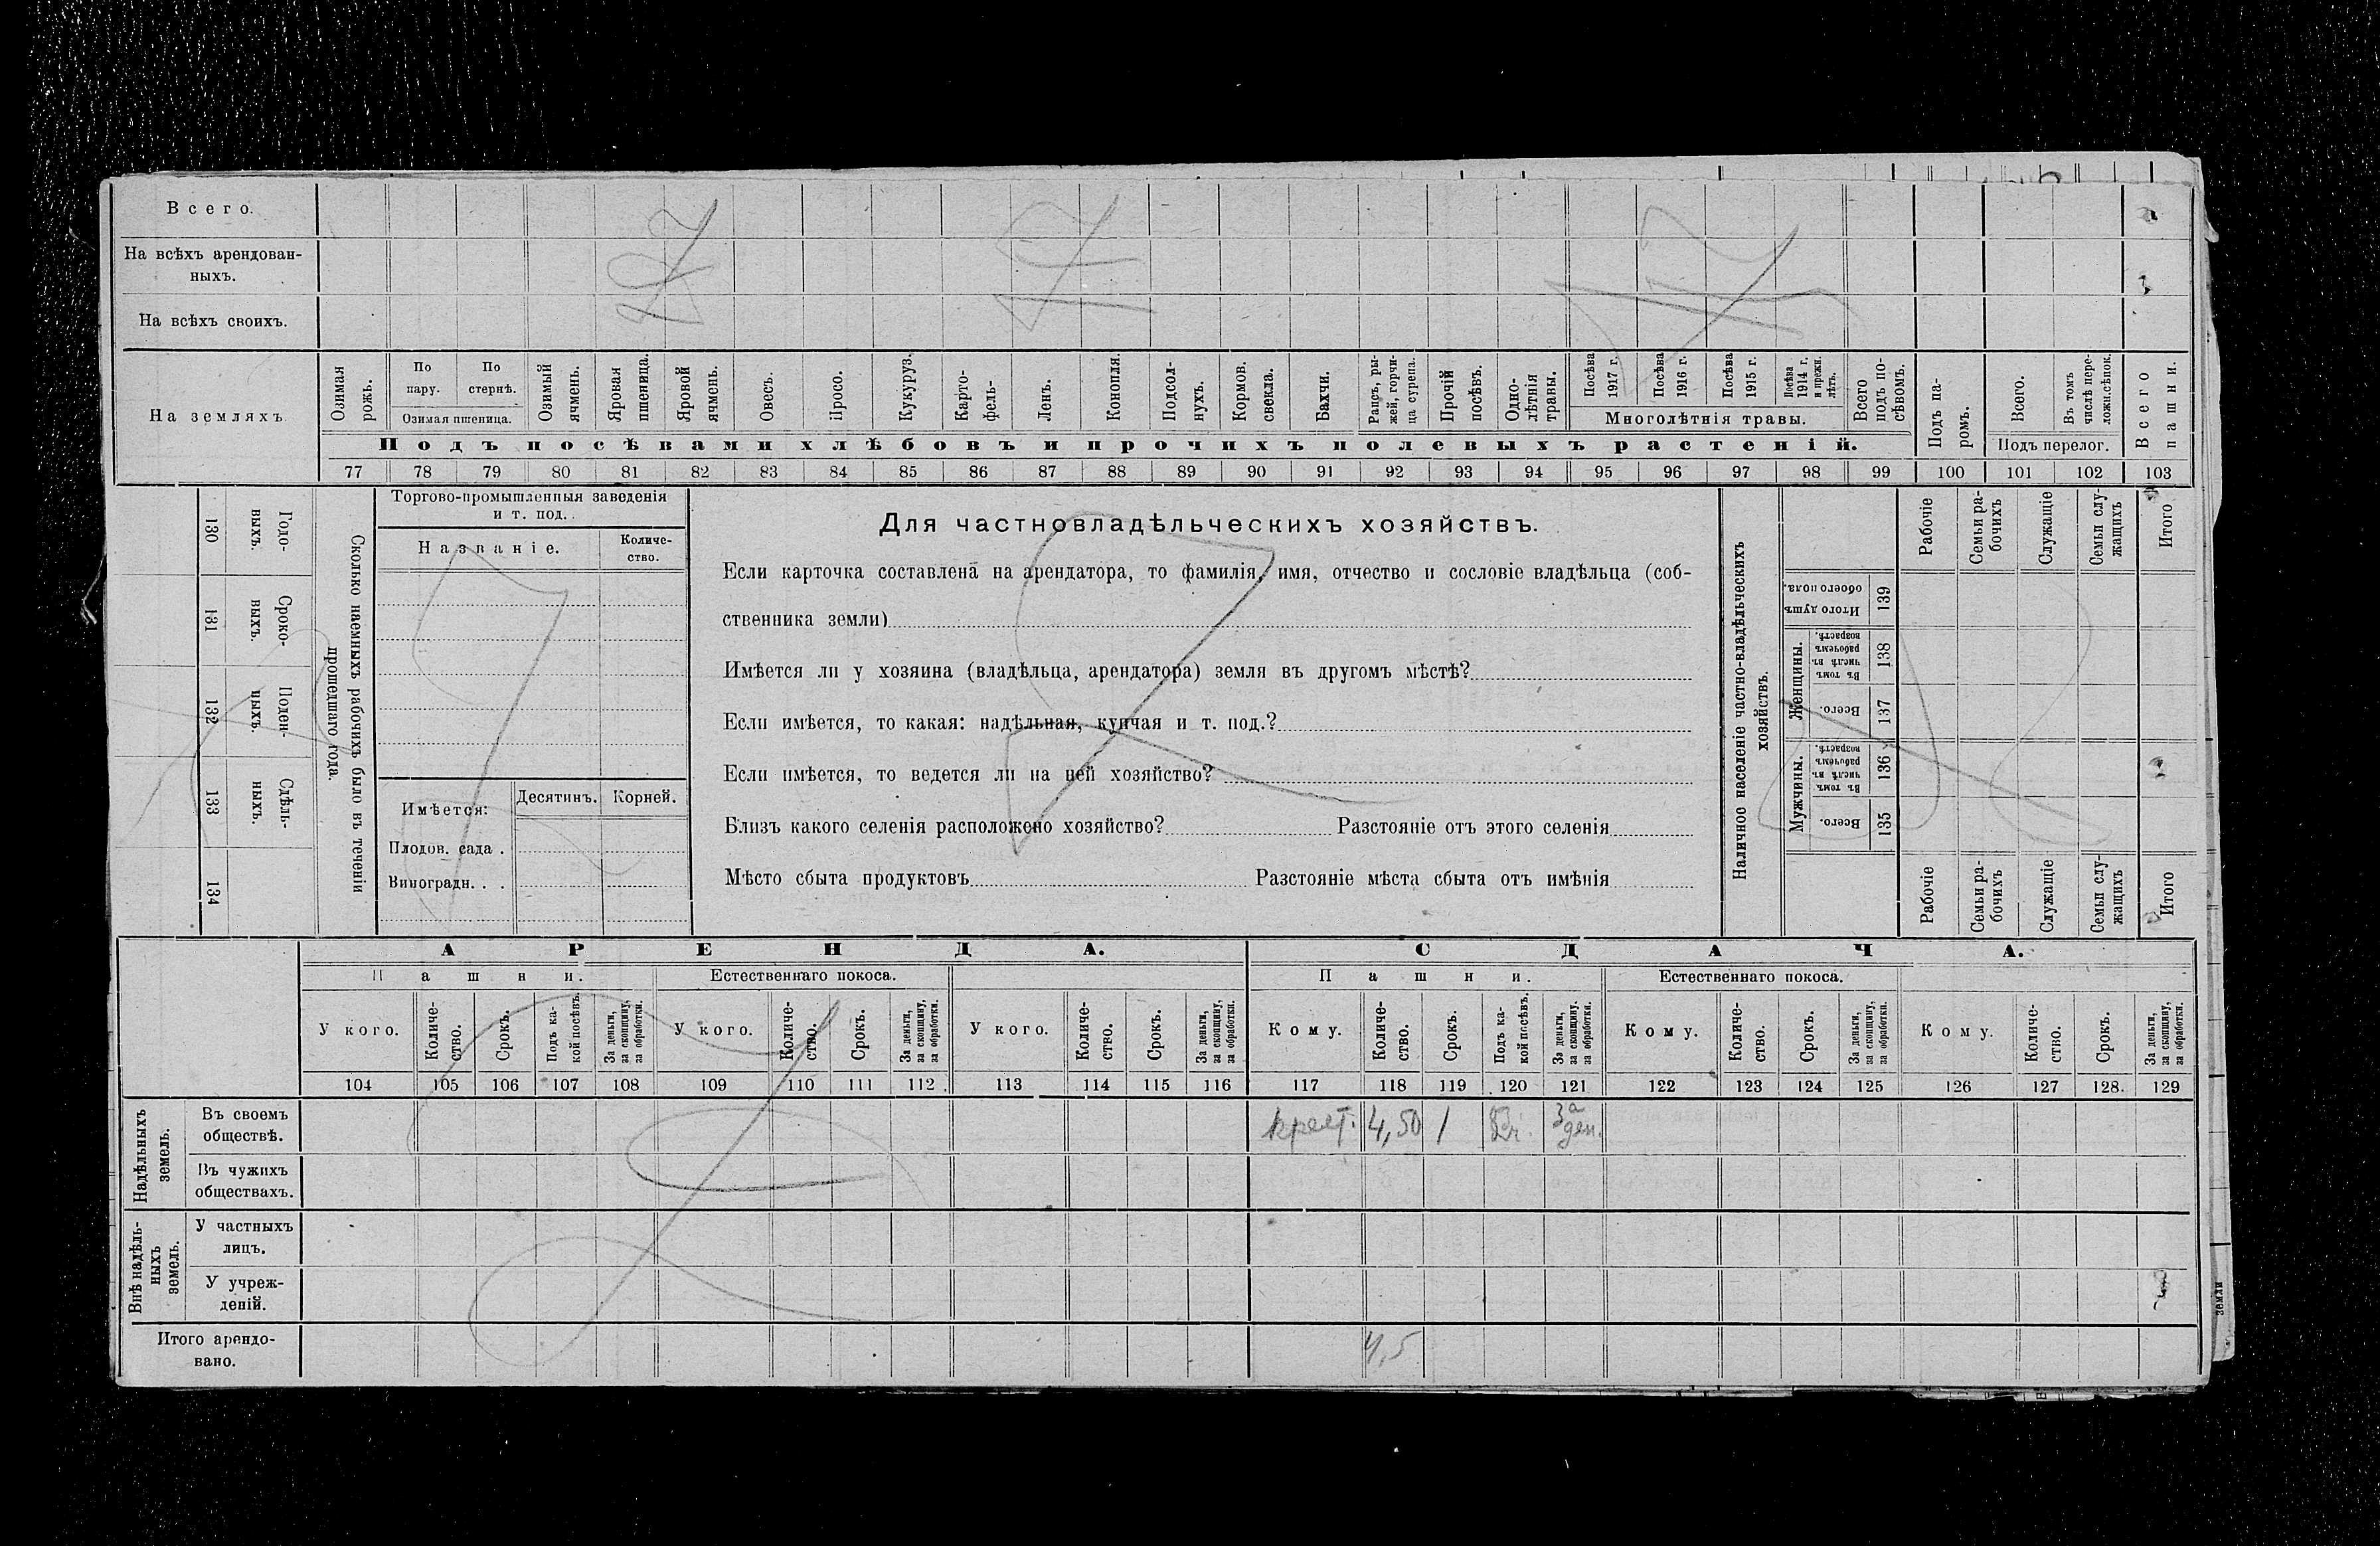 Всего.
На всѣхъ арендован-
ныхъ.
На всѣхъ своихъ.
На земляхъ
Озимая рожь.
По пару.
По стернѣ.
Озимая пшеница.
Озимый ячмень.
Яровая пшеница.
Яровой ячмень.
Овесъ.
Просо.
Кукуруз.
Карто-
фель-
Ленъ.
Конопля.
Подсол-
нухъ.
Кормов. свекла.
Бахчи.
Рапсъ, ры-
жей, горчи-
ца сурепа.
Прочій посѣвъ.
Одно-
лѣтнія травы.
Посѣва 1917 г.
Посѣва 1916 г.
Посѣва 1915 г.
Посѣва 1914 г. и прежн. лѣтъ.
Многолѣтнія травы.
Всего подъ по-
сѣвомъ.
Подъ па-
ромъ.
Всего.
Въ томъ числѣ пере-
ложн.сѣнок.
Подъ перелог.
Всего пашни.
Подъ посѣвами хлѣбовъ и прочихъ полевыхъ растеній.
77 78 79 80 81 82 83 84 85 86 87 88 89 90 91 92 93 94 95 96 97 98 99 100 101 102 103
130 Годо-
выхъ.
131 Сроко-
выхъ.
132 Поден-
ныхъ.
133 Сдѣль-
ныхъ.
134
Сколько наемныхъ рабочихъ было въ теченіи
прошедшаго года.
Торгово-промышленныя заведенія
и т. под.
Названіе.
Количе-
ство.
Имѣется:
Десятинъ. Корней.
Плодов. сада .
Виноградн. . .
Для частновладѣльческихъ хозяйствъ.
Если карточка составлена на арендатора, то фамилія, имя, отчество и сословіе владѣльца (соб-
ственника земли)
Имѣется ли у хозяина (владѣльца, арендатора) земля въ другомъ мѣстѣ?
Если имѣется, то какая: надѣльная, купчая и т. под.?
Если имѣется, то ведется ли на ней хозяйство?
Близъ какого селенія расположено хозяйство? Разстояніе отъ этого селенія
Мѣсто сбыта продуктовъ Разстояніе мѣста сбыта отъ имѣнія
Наличное населеніе частно-владѣльческихъ
хозяйствъ.
Рабочіе
Семьи ра-
бочихъ
Служащіе
Семьи слу-
жащихъ
Итого
Итого душъ обоего пола. 139
Женщины.
Въ томъ числѣ въ рабочемъ возрастѣ. 138
Всего. 137
Мужчины.
Въ томъ числѣ въ рабочемъ возрастѣ. 136
Всего. 135
Рабочіе
Семьи ра-
бочихъ
Служащіе
Семьи слу-
жащихъ
Итого
АРЕНДА. СДАЧА.
Пашни. Естественнаго покоса. Пашни. Естественнаго покоса.
У кого.
Количе-
ство.
Срокъ.
Подъ ка-
кой посѣвъ.
За деньги, за скопщину, за обработки.
У кого.
Количе-
ство.
Срокъ.
За деньги, за скопщину, за обработки.
У кого.
Количе-
ство.
Срокъ.
За деньги, за скопщину, за обработки.
Кому.
Количе-
ство.
Срокъ.
Подъ ка-
кой посѣвъ.
За деньги, за скопщину. за обработки.
Кому.
Количе-
ство.
Срокъ.
За деньги, за скопщину, за обработки.
Кому.
Количе-
ство.
Срокъ.
За деньги, за скопщину, за обработки.
104 105 106 107 108 109 110 111 112 . 113 114 115 116 117 118 119 120 121 122 123 124 125 126 127 128. 129
Надѣльныхъ земель.
Въ своемъ
обществѣ.
крест. 4,50 1 За ден.
Въ чужихъ
обществахъ.
Внѣ надѣль-
ныхъ земель.
У частныхъ
лицъ.
У учреж-
деній.
Итого арендо-
вано.
4,5
земли